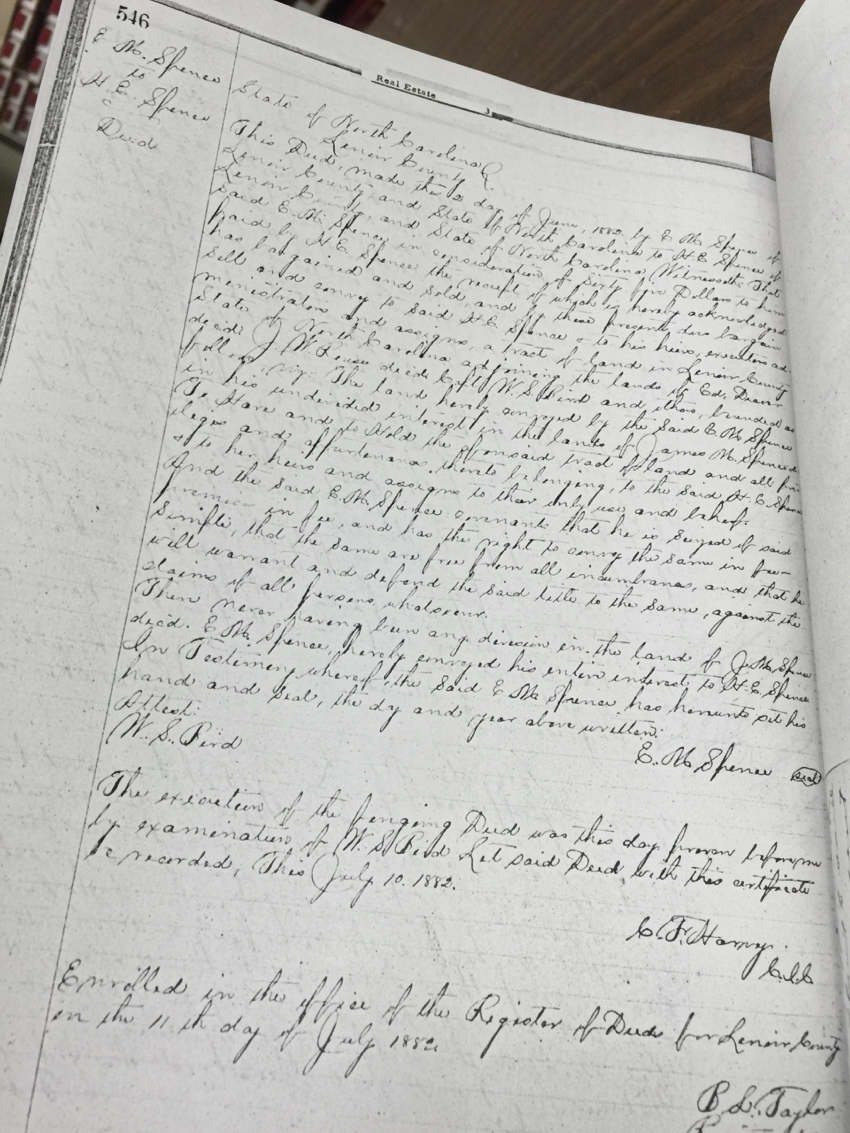 546
Real Estate
E. M. Spence
to
H. E. Spence
Deed
State of North Carolina
Lenoir County
This Deed, made this 2 day of June, 1882 by E. M. Spence of
Lenoir County and State of North Carolina to H. E. Spence of
Lenoir County, and State of North Carolina, Witnesseth, That
said E. M. Spence in consideration of Sixty five Dollars to him
paid by H. E. Spence the receipt of which is hereby acknowledged
has bargained and sold and by these presents does bargain
sell and convey to said H. E. Spence & to his heirs, executors ad-
ministrators and assigns, a tract of land in Lenoir County
State of North Carolina adjoining the lands of Ed,
decd. J. W. decd. W. S. Bird and others, bounded as
follows, viz: The land hereby conveyed by the said E. M. Spence
in his undivided interest in the lands of James M. Spence
To Have and to Hold the aforesaid tract of land and all priv-
ileges and appurtenances, thereto belonging, to the said H. E. Spence
& to her heirs and assigns to their only use and behoof.
And the said E. M. Spence covenants that he is seized of said
premises in fee, and has the right to convey the same in fee-
simple, that the same are free from all incumbrances, and that he
will warrant and defend the said title to the same, against the
claims of all persons whatsoever.
There never having been any division in the land of J. M. Spence
decd. E. M. Spence, hereby conveyed his entire interest to H. E. Spence
In Testimony whereof, the said E. M. Spence, has hereunto set his
hand and seal, the day and year above written.
E. M. Spence (seal)
Attest:
W. S. Bird
The execution of the foregoing Deed was this day proven before me
by examination of W. S. Bird Let said Deed with this certificate
be recorded, This July 10. 1882.
C. F. Harvey.
C.S.C
Enrolled in the office of the Register of Deeds for Lenoir County
on the 11th day of July 1882
B. L. Taylor